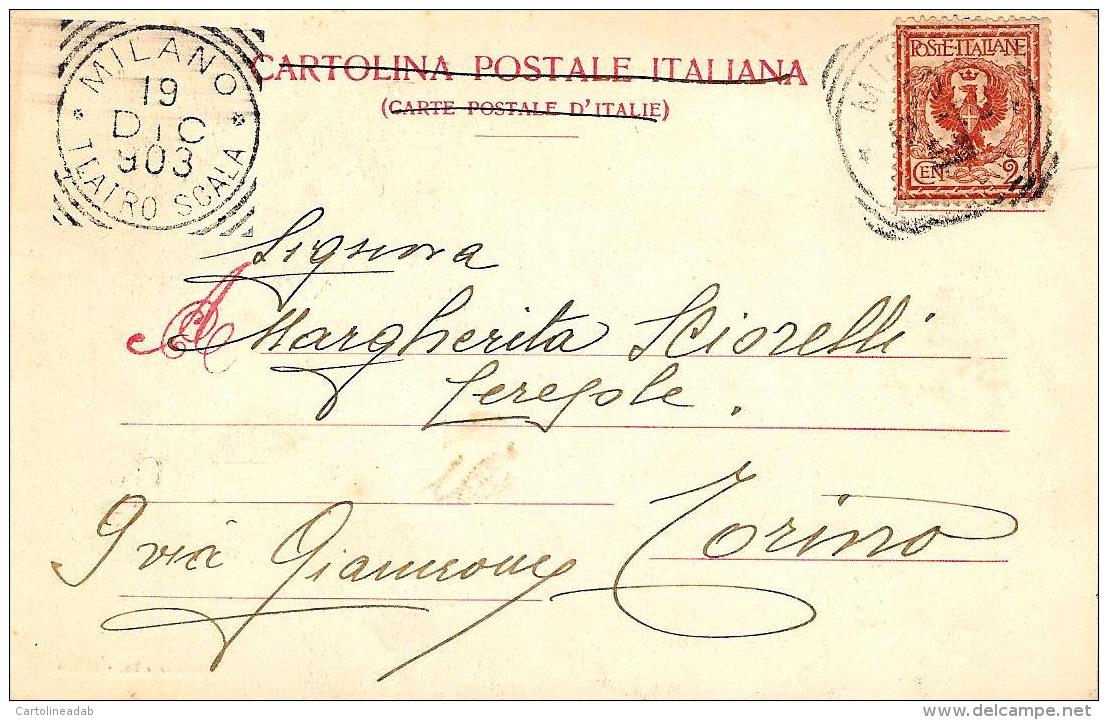 MILANO
19
DIC
903
TEATRO SCALA
CARTOLINA POSTALE ITALIANA
(CARTE POSTALE D'ITALIE)
POSTE·ITALIANE
CEN 2
MI
Signora
A Margherita Sciorelli
Ceresole.
Torino
9 via Giannone
Cartolineadab
delcampe.net